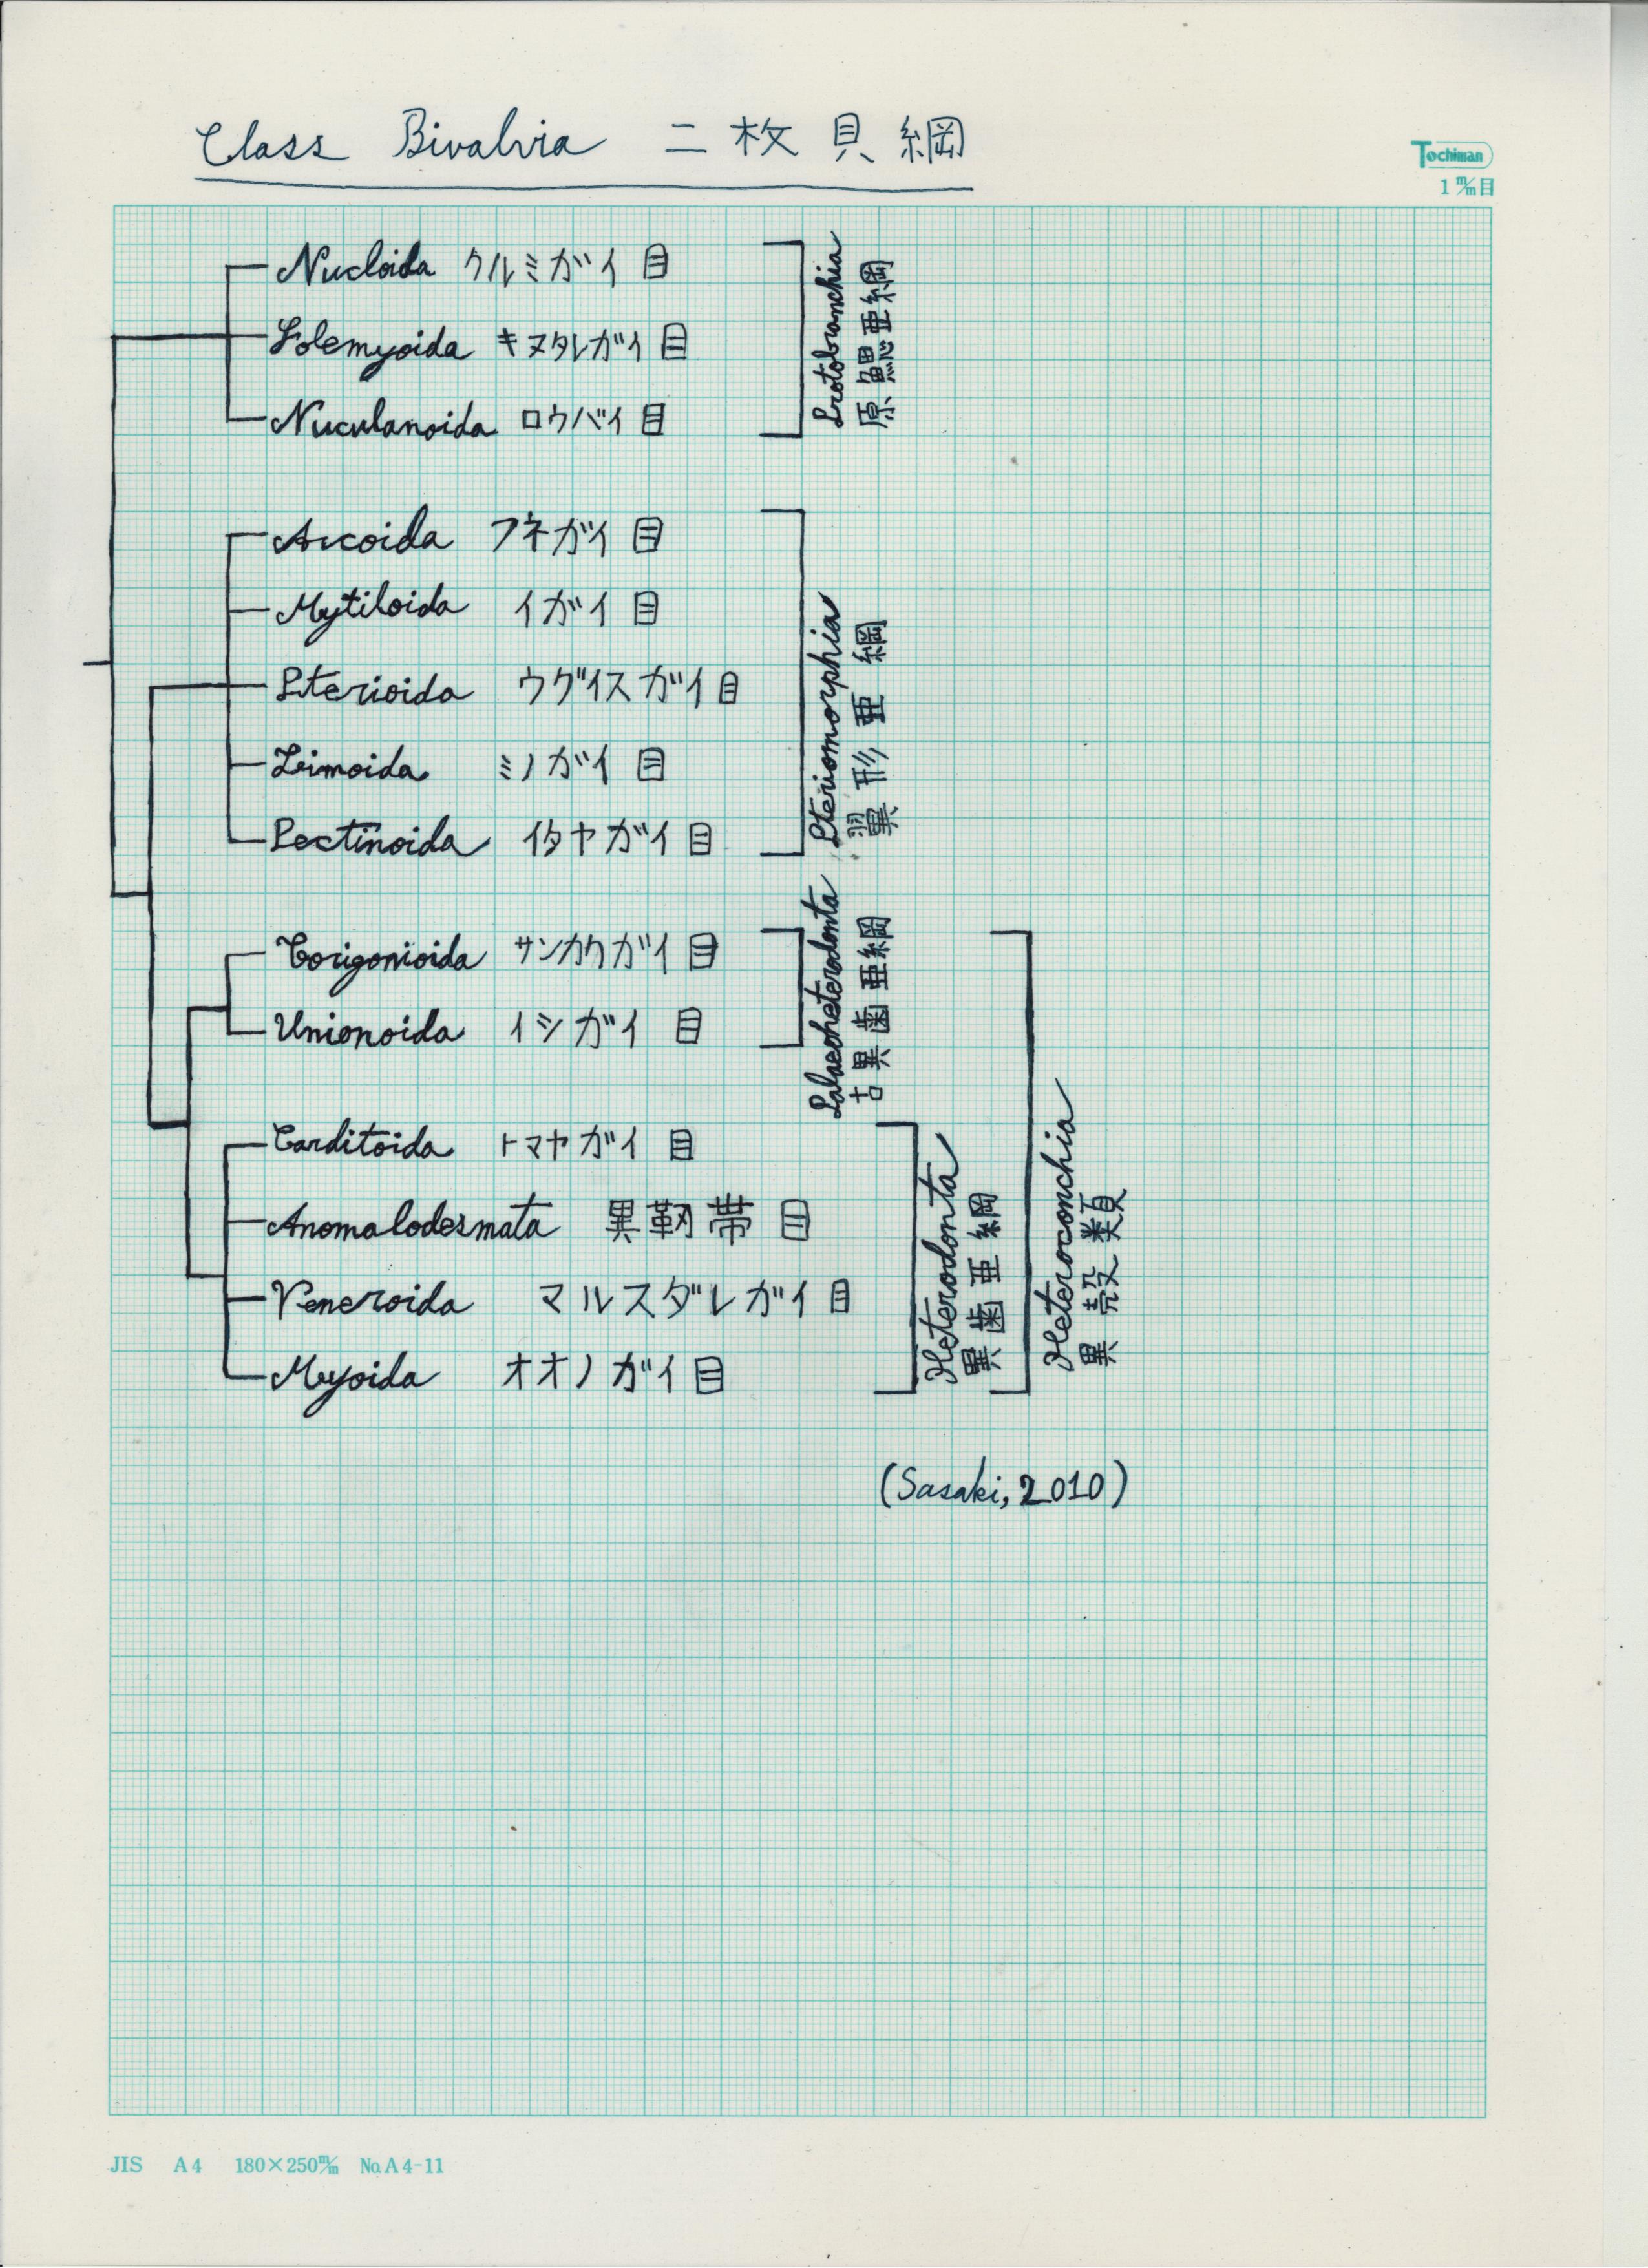 Class Bivalvia 二枚貝綱
Tochiman
1 m/m目
Nucloida クルミガイ目
Solemyoida キヌタレガイ目
Nuculanoida ロウバイ目
Protobranchia
原鰓亜綱
Arcoida フネガイ目
Mytiloida イガイ目
Pterioida ウグイスガイ目
Limoida ミノガイ目
Pectinoida イタヤガイ目
Pteriomorphia
翼形亜綱
Torigonioida サンカクガイ目
Unionoida イシガイ目
Palaeoheterodonta
古異歯亜綱
Carditoida トマヤガイ目
Anomalodesmata 異靭帯目
Veneroida マルスダレガイ目
Myoida オオノガイ目
Heterodonta
異歯亜綱
Heteroconchia
異殻類
(Sasaki, 2010)
JIS A4 180×250m/m No.A4-11